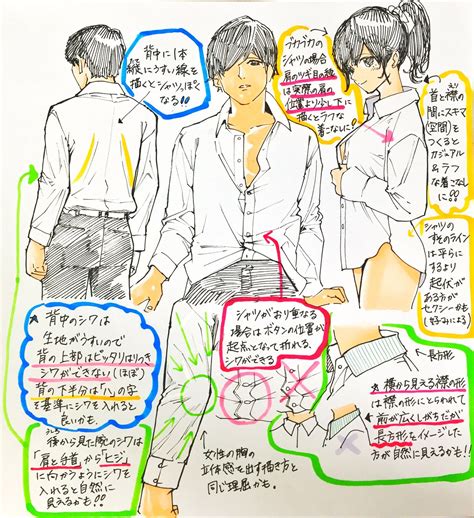 背中に1本
縦にうすい線を
描くとシャツっぽく
なる!!
ブカブカの
シャツの場合
肩のツギ目の線
は実際の肩の
位置より少し下に
描くとラフな
着こなしに!!
首と襟の
えり
間にスキマ
(空間)を
つくると
カジュアル
&ラフ
な着こなし
に!!
シャツの
すそのライン
は平らに
するより
起伏が
ある方が
セクシーかも
(好みによる)
★背中のシワは
生地がうすいので
背の上部はピッタリはりつき
シワができない(ほぼ)
背の下半分は「ハ」の字
を基準にシワを入れると
良いかも。
シャツがおり重なる
場合はボタンの位置が
起点となって折れる、
シワができる
長方形
★横から見える襟の形
は襟の形にとらわれて
前が広くしがちだが
長方形をイメージした
方が自然に見えるかも!!
後から見た腕のシワは
「肩と手首」から「ヒジ」
に向かうようにシワを
入れると自然に
見えるかも!!
女性の胸の
立体感を出す描き方と
同じ理屈かも。